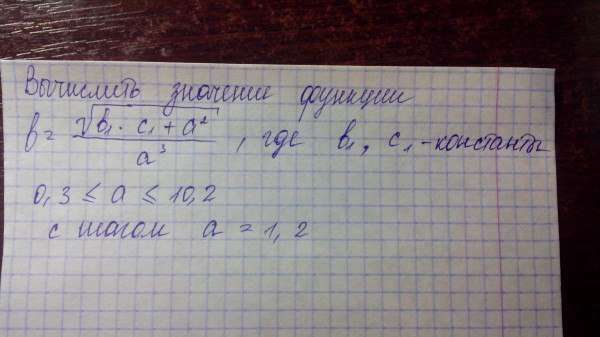 Вычислить значение функции
в = √в₁ · c₁ + a² / a³ , где в₁, c₁ - константы
0,3 ≤ a ≤ 10,2
с шагом a = 1,2